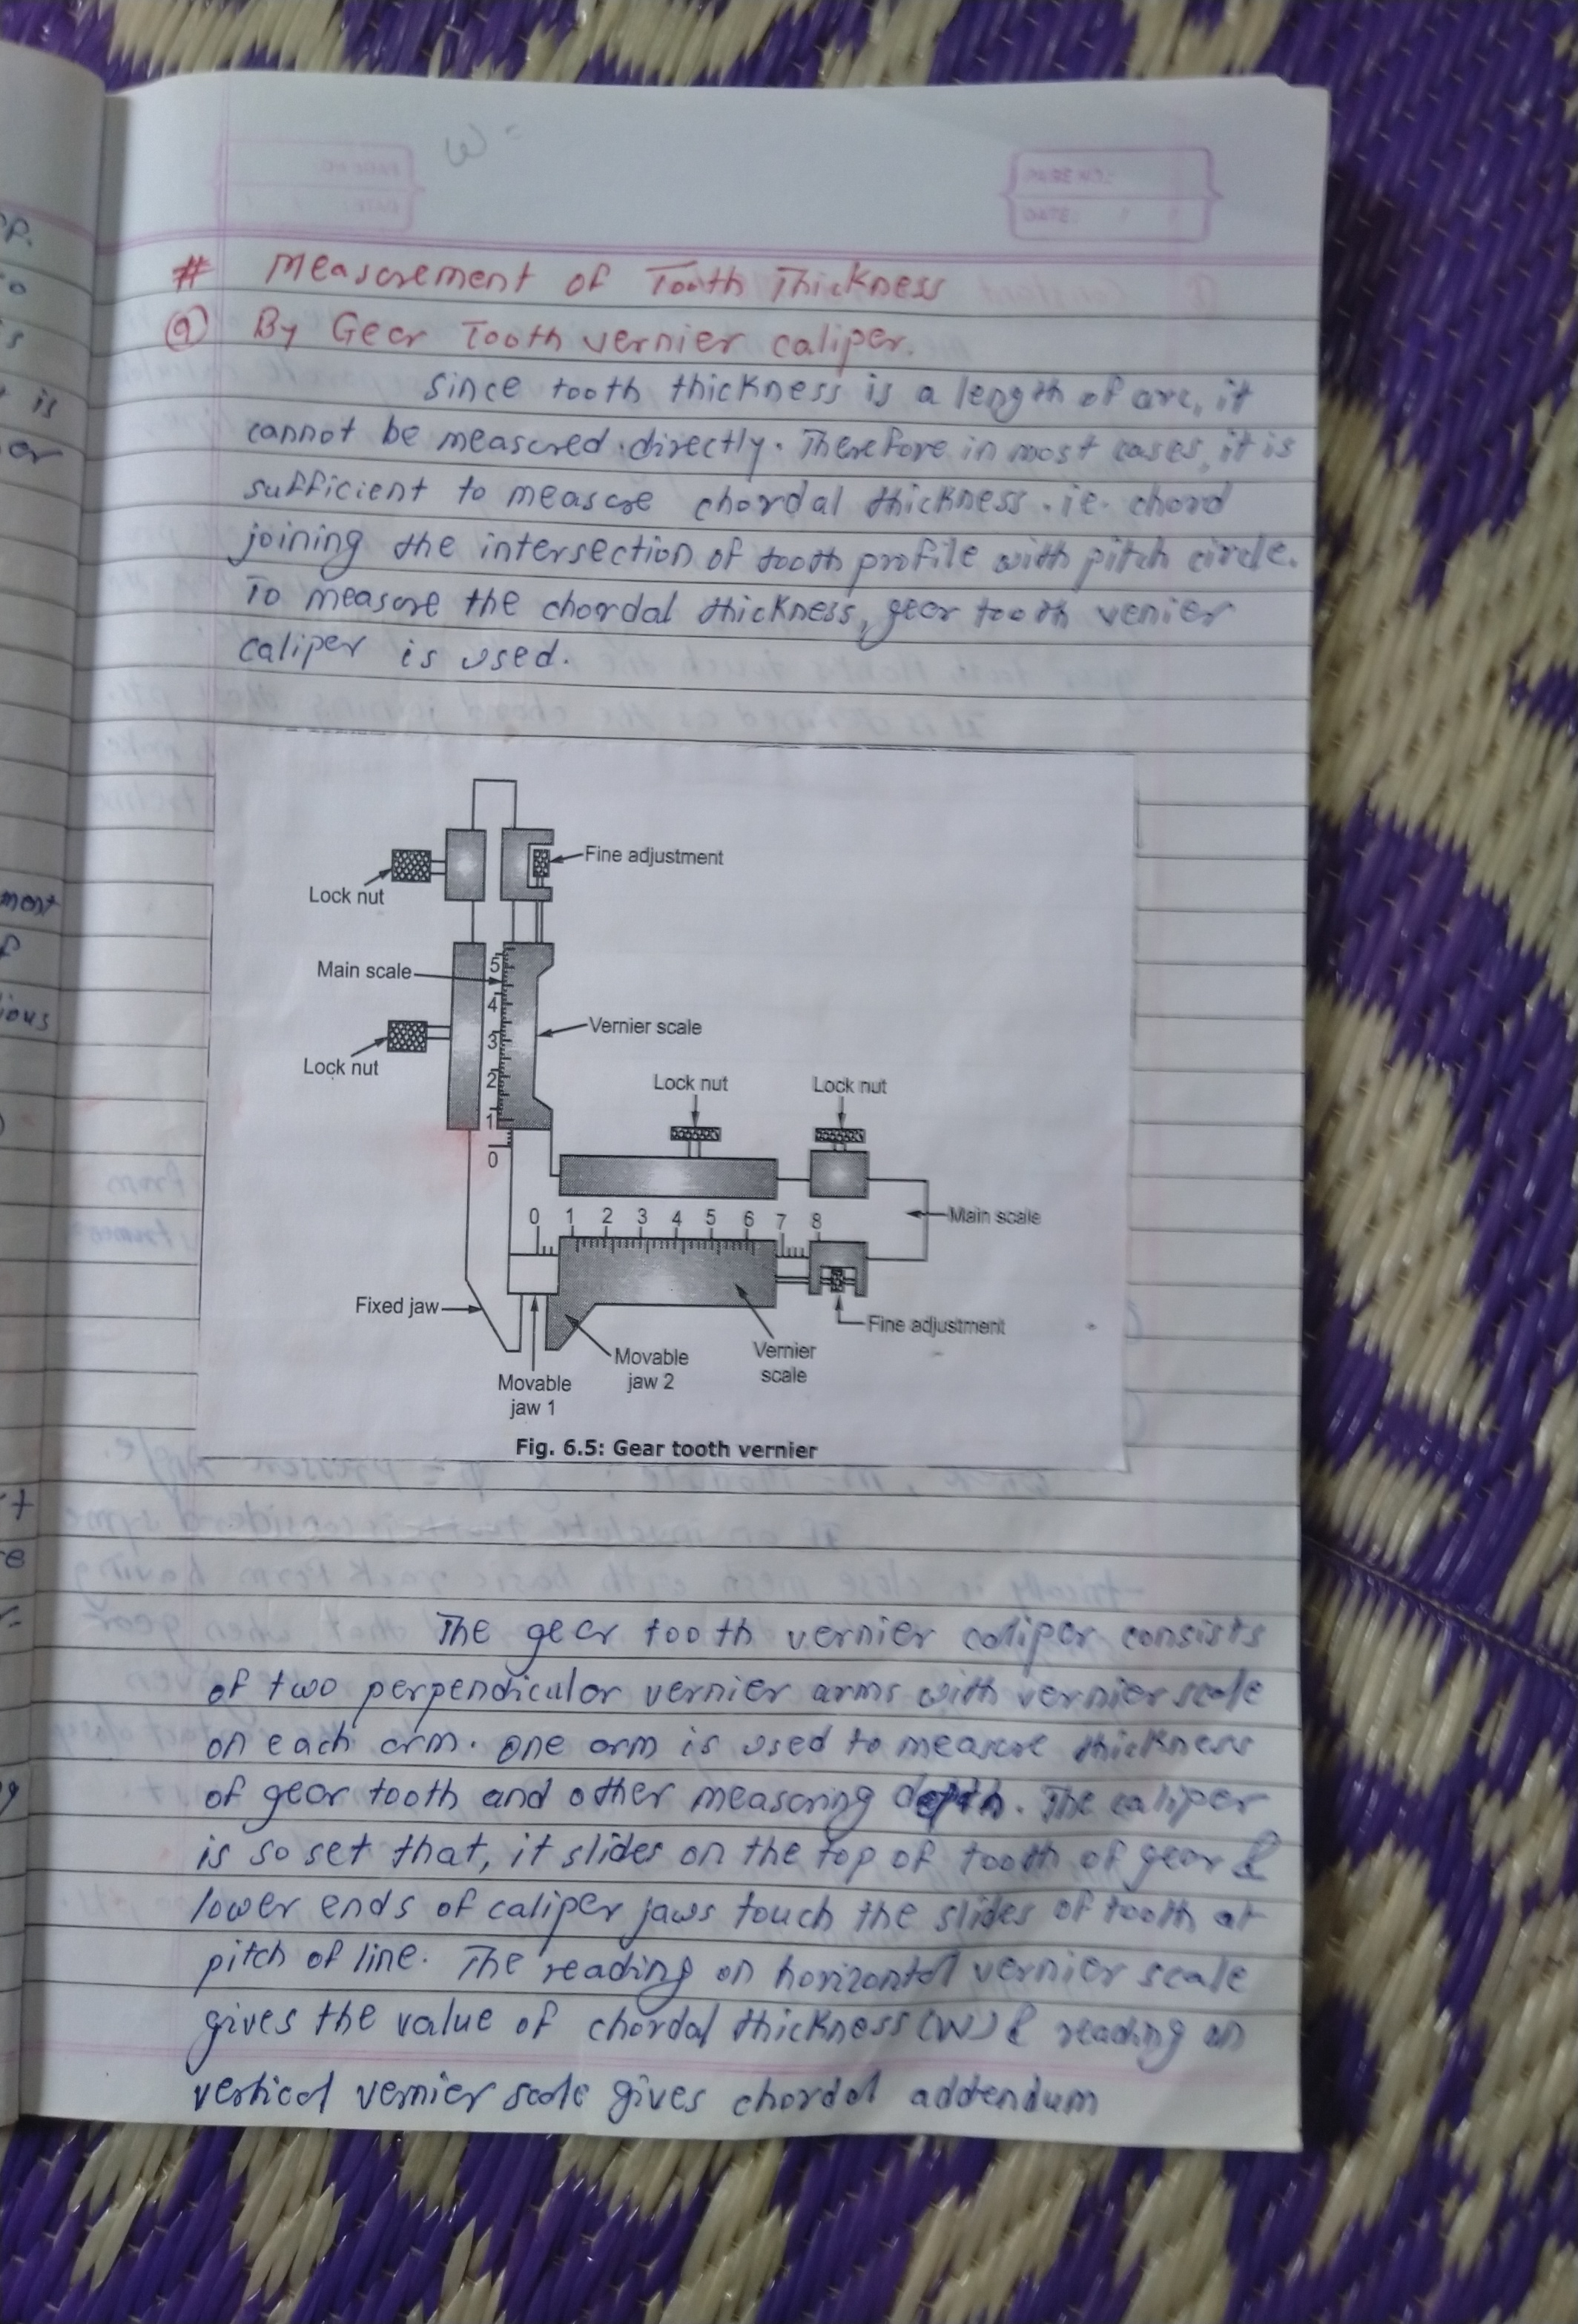 # Measurement of Tooth Thickness
a) By Gear Tooth vernier caliper.
Since tooth thickness is a length of arc, it
cannot be measured directly. Therefore in most cases, it is
sufficient to measure chordal thickness. ie. chord
joining the intersection of tooth profile with pitch circle.
To measure the chordal thickness, gear tooth venier
caliper is used.
Fine adjustment
Lock nut
Main scale
5
4
3
2
1
0
Vernier scale
Lock nut
Lock nut
Lock nut
0 1 2 3 4 5 6 7 8
Main scale
Fixed jaw
Fine adjustment
Movable
jaw 2
Vernier
scale
Movable
jaw 1
Fig. 6.5: Gear tooth vernier
The gear tooth vernier caliper consists
of two perpendicular vernier arms with vernier scale
on each arm. One arm is used to measure thickness
of gear tooth and other measuring depth. The caliper
is so set that, it slides on the top of tooth of gear &
lower ends of caliper jaws touch the slides of tooth at
pitch of line. The reading on horizontal vernier scale
gives the value of chordal thickness (W) & reading on
vertical vernier scale gives chordal addendum